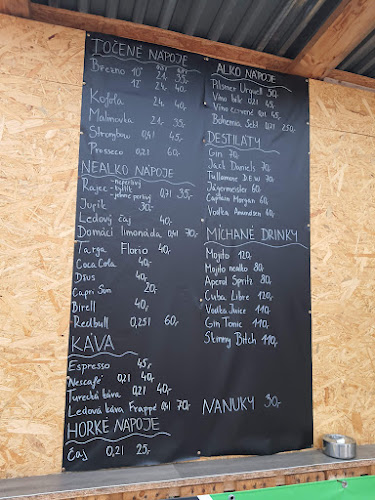 TOČENÉ NÁPOJE
Březno 10° 21,- 35,-
12° 24,- 40,-
Kofola 24,- 40,-
Malinovka 21,- 35,-
Strongbow 0,4l 45,-
Prosseco 0,2l 60,-
NEALKO NÁPOJE
Rajec - neperlivý
- bylilk
- jemně perlivý 0,7l 35,-
Jupík 30,-
Ledový čaj 40,-
Domácí limonáda 0,4l 70,-
Targa Florio 40,-
Coca Cola 40,-
Džus 40,-
Capri Son 20,-
Birell 40,-
Redbull 0,25l 60,-
KÁVA
Espresso 45,-
Nescafé 0,2l 40,-
Turecká káva 0,2l 40,-
Ledová káva Frappé 0,4l 70,-
HORKÉ NÁPOJE
Čaj 0,2l 25,-
ALKO NÁPOJE
Pilsner Urquell 50,-
Víno bílé 0,2l 45,-
Víno červené 0,2l 45,-
Bohemia Sekt 0,7l 250,-
DESTILÁTY
Gin 70,-
Jack Daniels 70,-
Tullamore D.E.W 70,-
Jägermeister 60,-
Captain Morgan 60,-
Vodka Amundsen 60,-
MÍCHANÉ DRINKY
Mojito 120,-
Mojito nealko 80,-
Aperol Spritz 80,-
Cuba Libre 120,-
Vodka Juice 110,-
Gin Tonic 110,-
Skinny Bitch 110,-
NANUKY 30,-